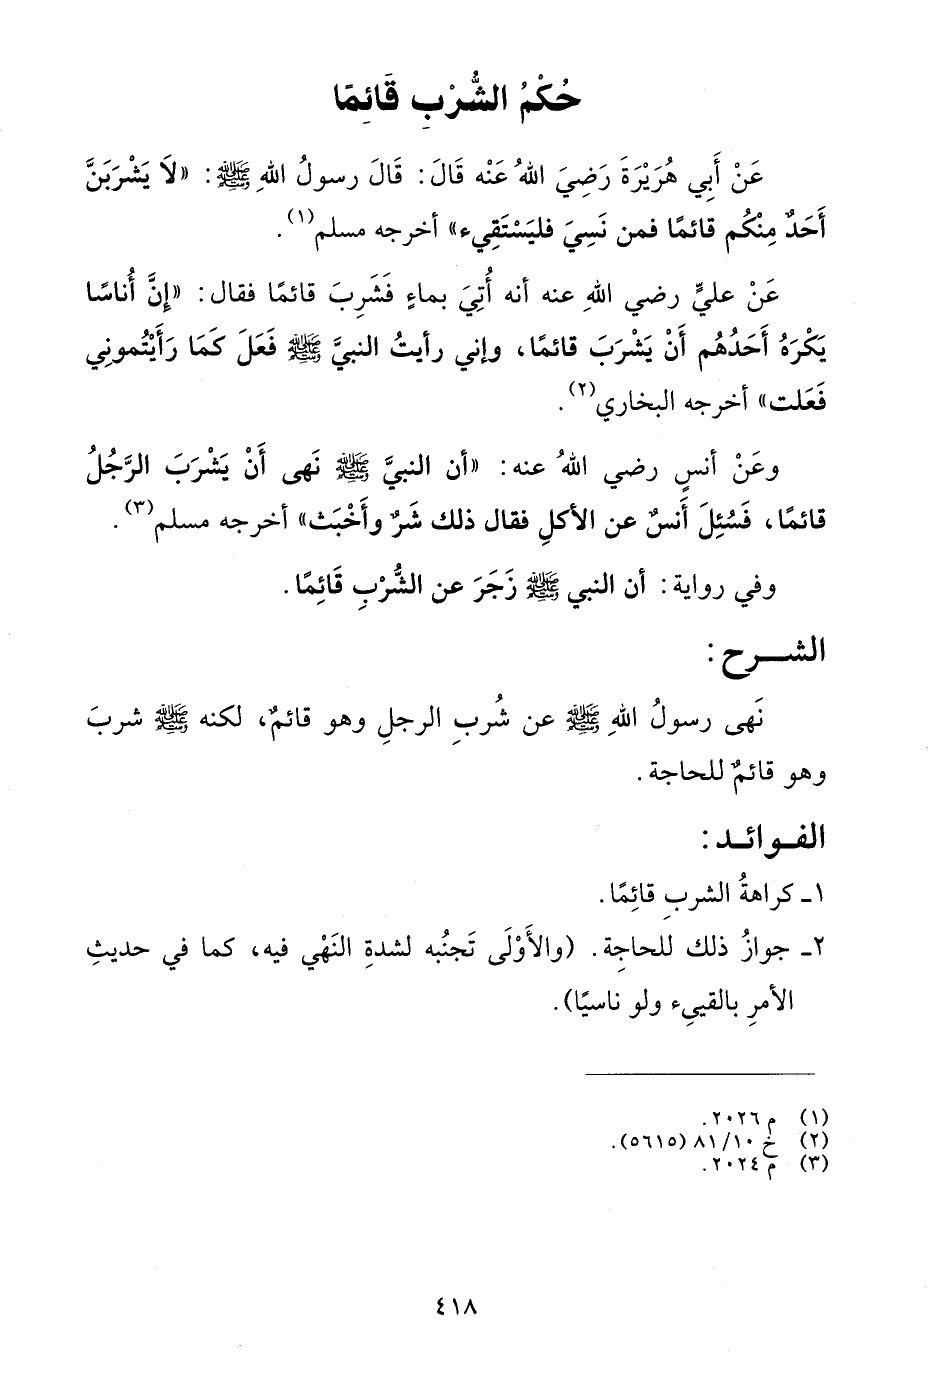 حُكْمُ الشُّرْبِ قَائِمًا
عَنْ أَبِي هُرَيْرَةَ رَضِيَ اللهُ عَنْه قَالَ: قَالَ رسولُ اللهِ ﷺ: «لَا يَشْرَبَنَّ
أَحَدٌ مِنْكُم قائمًا فمن نَسِيَ فليَسْتَقِيء» أخرجه مسلم(١).
عَنْ عليٍّ رضي اللهِ عنه أنه أُتِيَ بماءٍ فَشَرِبَ قائمًا فقال: «إِنَّ أُناسًا
يَكْرَهُ أَحَدُهُم أَنْ يَشْرَبَ قائمًا، وإني رأيتُ النبيَّ ﷺ فَعَلَ كَمَا رَأَيْتُموني
فَعَلت» أخرجه البخاري(٢).
وعَنْ أنسٍ رضي اللهُ عنه: «أن النبيَّ ﷺ نَهى أَنْ يَشْرَبَ الرَّجُلُ
قائمًا، فَسُئِلَ أَنسٌ عن الأكلِ فقال ذلك شَرٌ وأَخْبَث» أخرجه مسلم(٣).
وفي رواية: أن النبي ﷺ زَجَرَ عن الشُّرْبِ قَائِمًا.
الشــرح:
نَهى رسولُ اللهِ ﷺ عن شُربِ الرجلِ وهو قائمٌ، لكنه ﷺ شربَ
وهو قائمٌ للحاجة.
الفـوائـد:
١ـ كراهةُ الشربِ قائِمًا.
٢ـ جوازُ ذلك للحاجةِ. (والأَوْلَى تَجنُبه لشدةِ النَهْي فيه، كما في حديثِ
الأمرِ بالقييِء ولو ناسيًا).
(١) م ٢٠٢٦.
(٢) خ ٨١/١٠ (٥٦١٥).
(٣) م ٢٠٢٤.
٤١٨